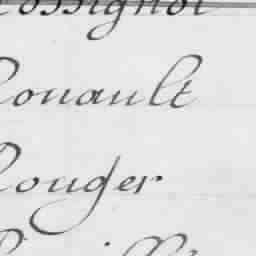 Rossignol
Rouault
Rouger